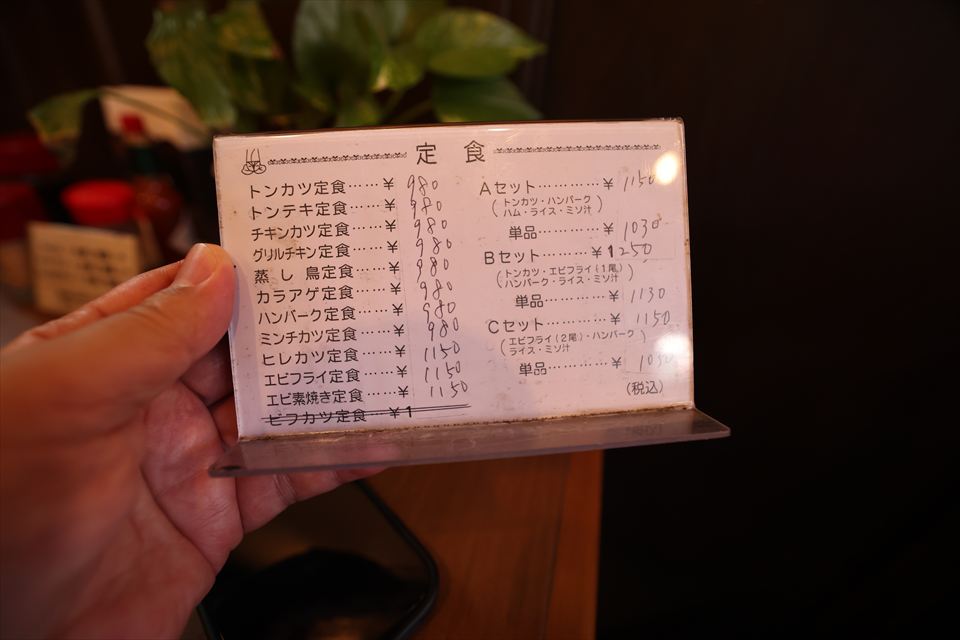 定食
トンカツ定食……¥ 980
トンテキ定食……¥ 980
チキンカツ定食……¥ 980
グリルチキン定食……¥ 980
蒸し鳥定食……¥ 980
カラアゲ定食……¥ 980
ハンバーク定食……¥ 980
ミンチカツ定食……¥ 980
ヒレカツ定食……¥ 1150
エビフライ定食……¥ 1150
エビ素焼き定食……¥ 1150
ビフカツ定食……¥1
Aセット…………¥ 1150
(トンカツ・ハンバーク
ハム・ライス・ミソ汁)
単品…………¥ 1030
Bセット…………¥1250
(トンカツ・エビフライ(1尾)
ハンバーク・ライス・ミソ汁)
単品…………¥ 1130
Cセット…………¥ 1150
(エビフライ(2尾)・ハンバーク
ライス・ミソ汁)
単品…………¥ 1030
(税込)